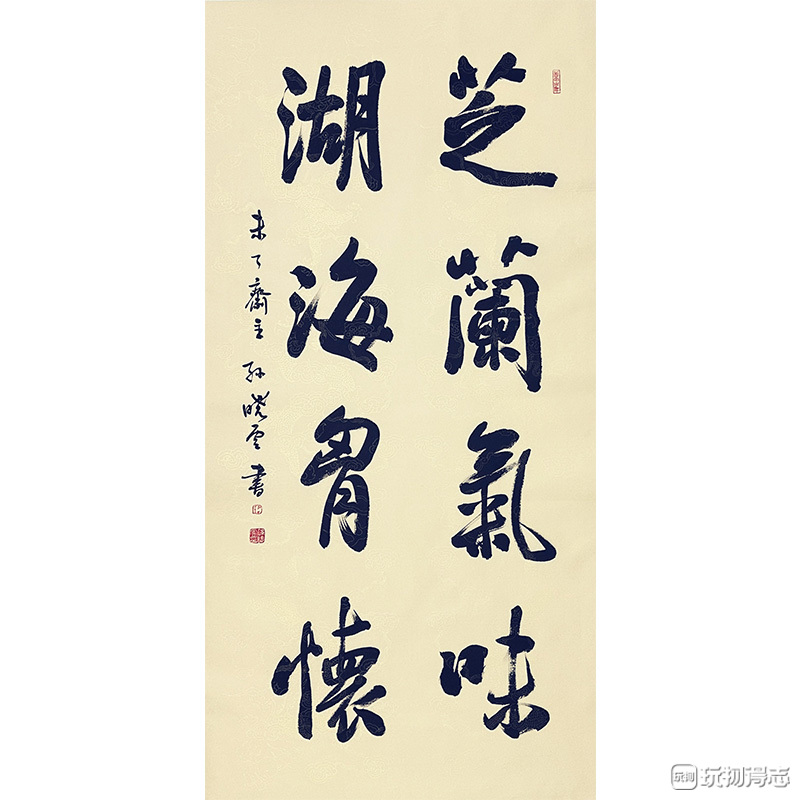 芝蘭氣味
湖海胷懷
未了齋主 孫曉雲 書
玩物得志